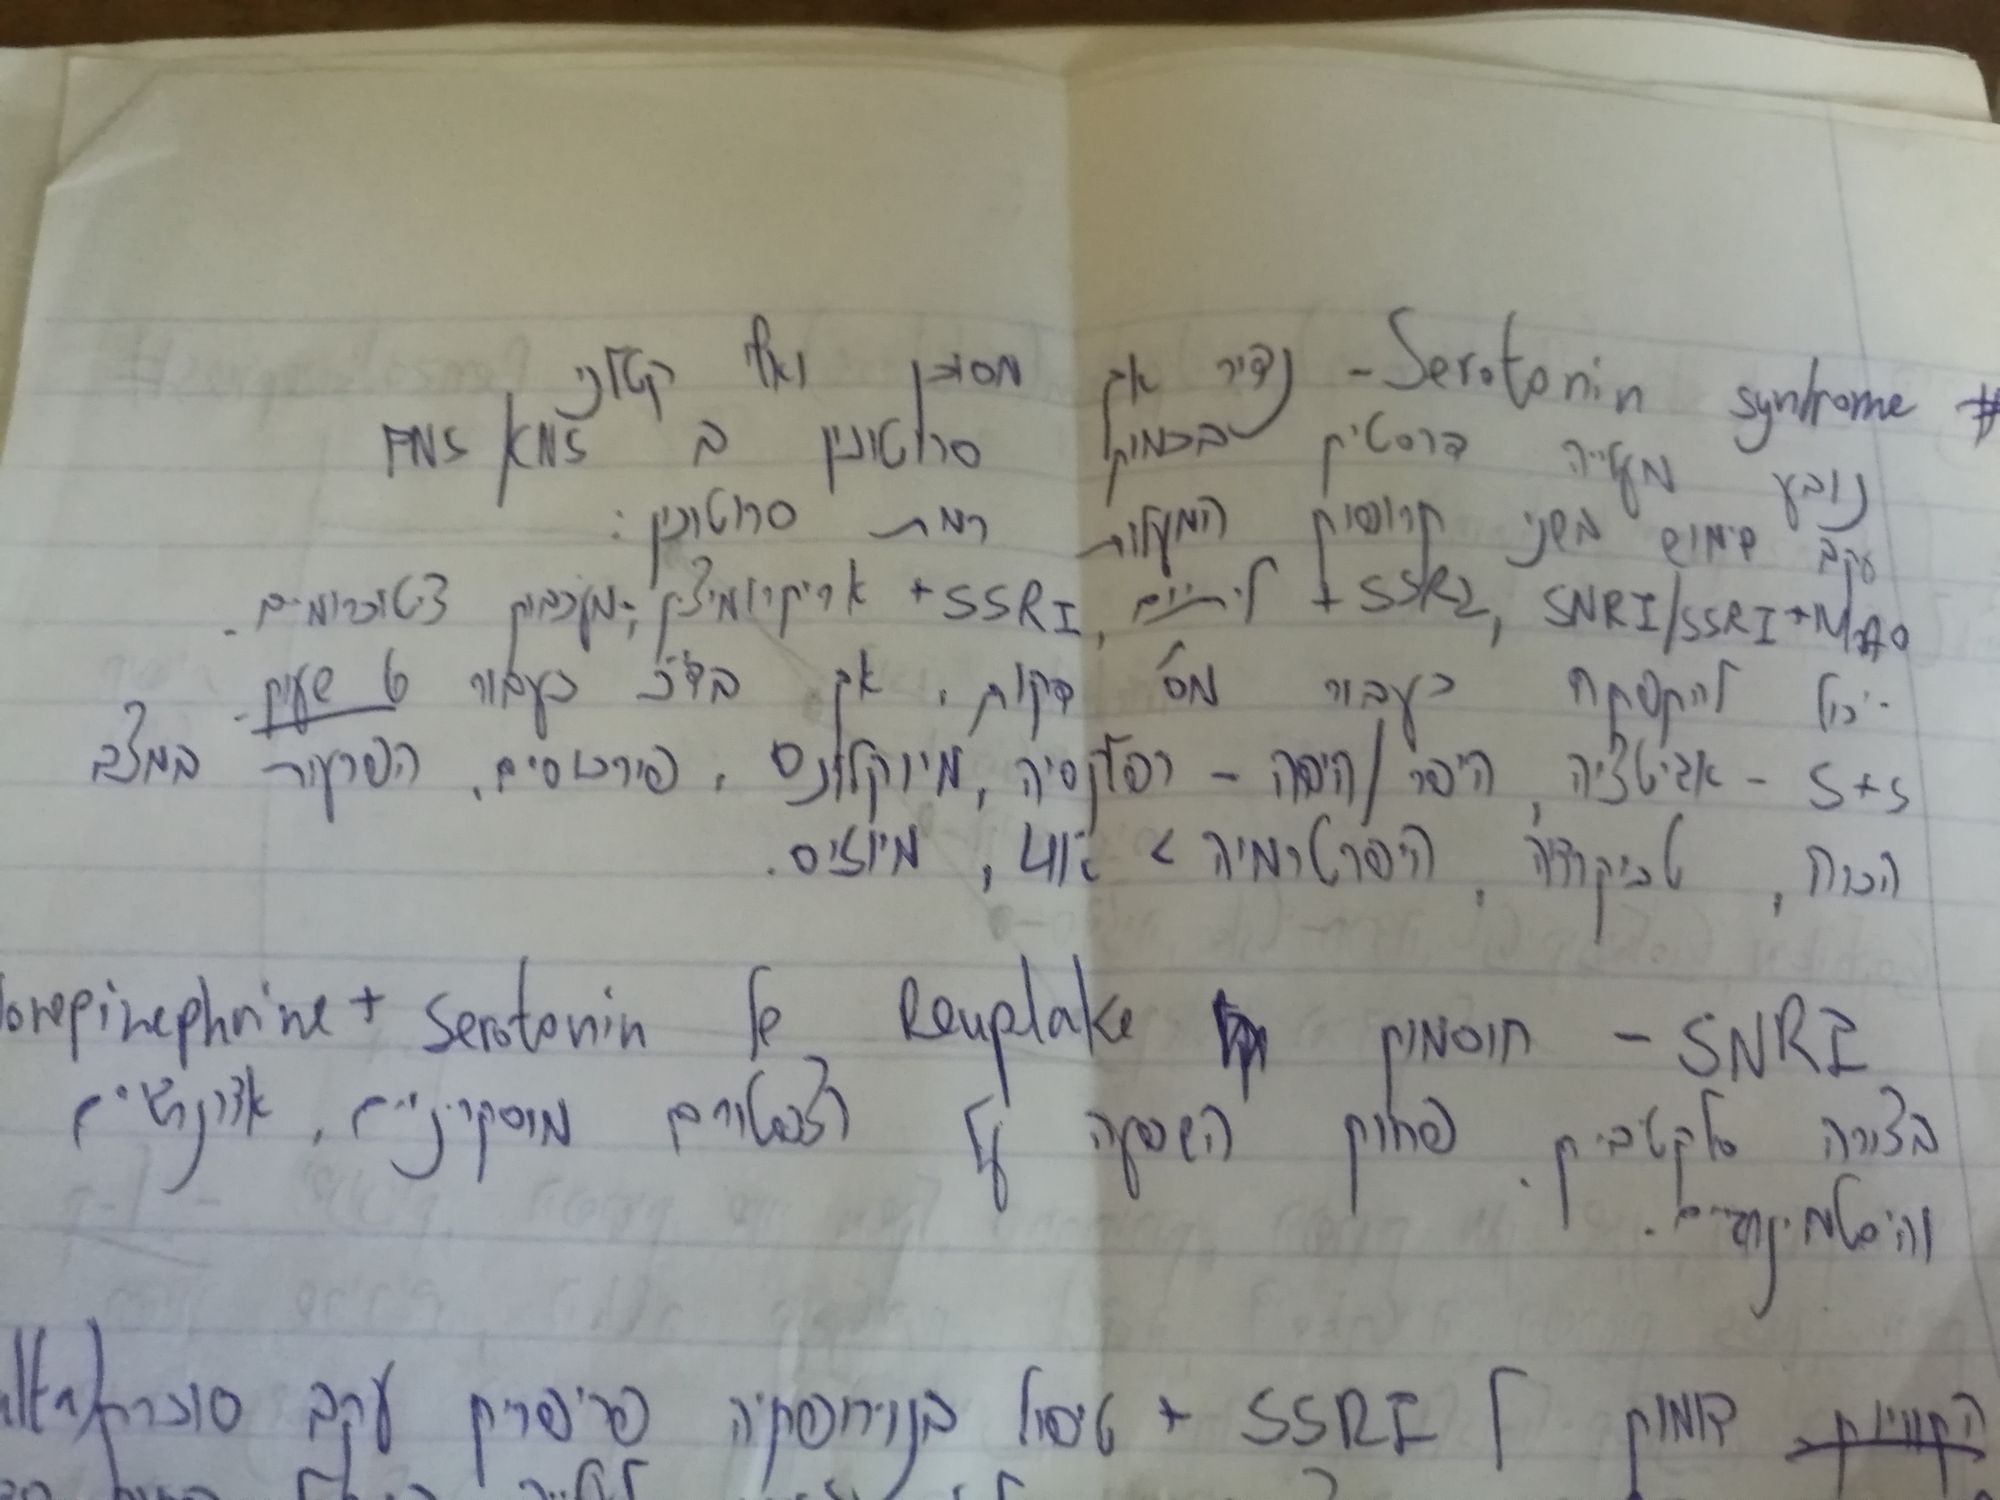 # Serotonin syndrome - נדיר אך מסוכן ואף קטלני
נובע מעלייה דרסטית בכמות סרוטונין ב CNS/PNS
עקב שימוש בשני תרופות המעלות רמת סרוטונין:
SNRI/SSRI+MAO, SSRI + ליתיום, SSRI+ אריתרומיצין, מעכבות ציטוכרומים.
- יכול להתפתח כעבור מס' דקות, אך בד"כ כעבור 6 שעות.
S+S - אגיטציה, היפר/היפו - רפלקסיה, מיוקלונוס, פירכוסים, הפרעות במצב
הכרה, טכיקרדיה, היפרטרמיה > 40, מיוזיס.
SNRI - חוסמות Reuptake של Serotonin + Norepinephrine
בצורה סלקטיבית. פחות השפעה על רצפטורים מוסקריניים, אדרנרגיים
והיסטמינרגיים.
התוויות דומות ל SSRI + טיפול בנוירופתיה פריפרית עקב סוכרת/